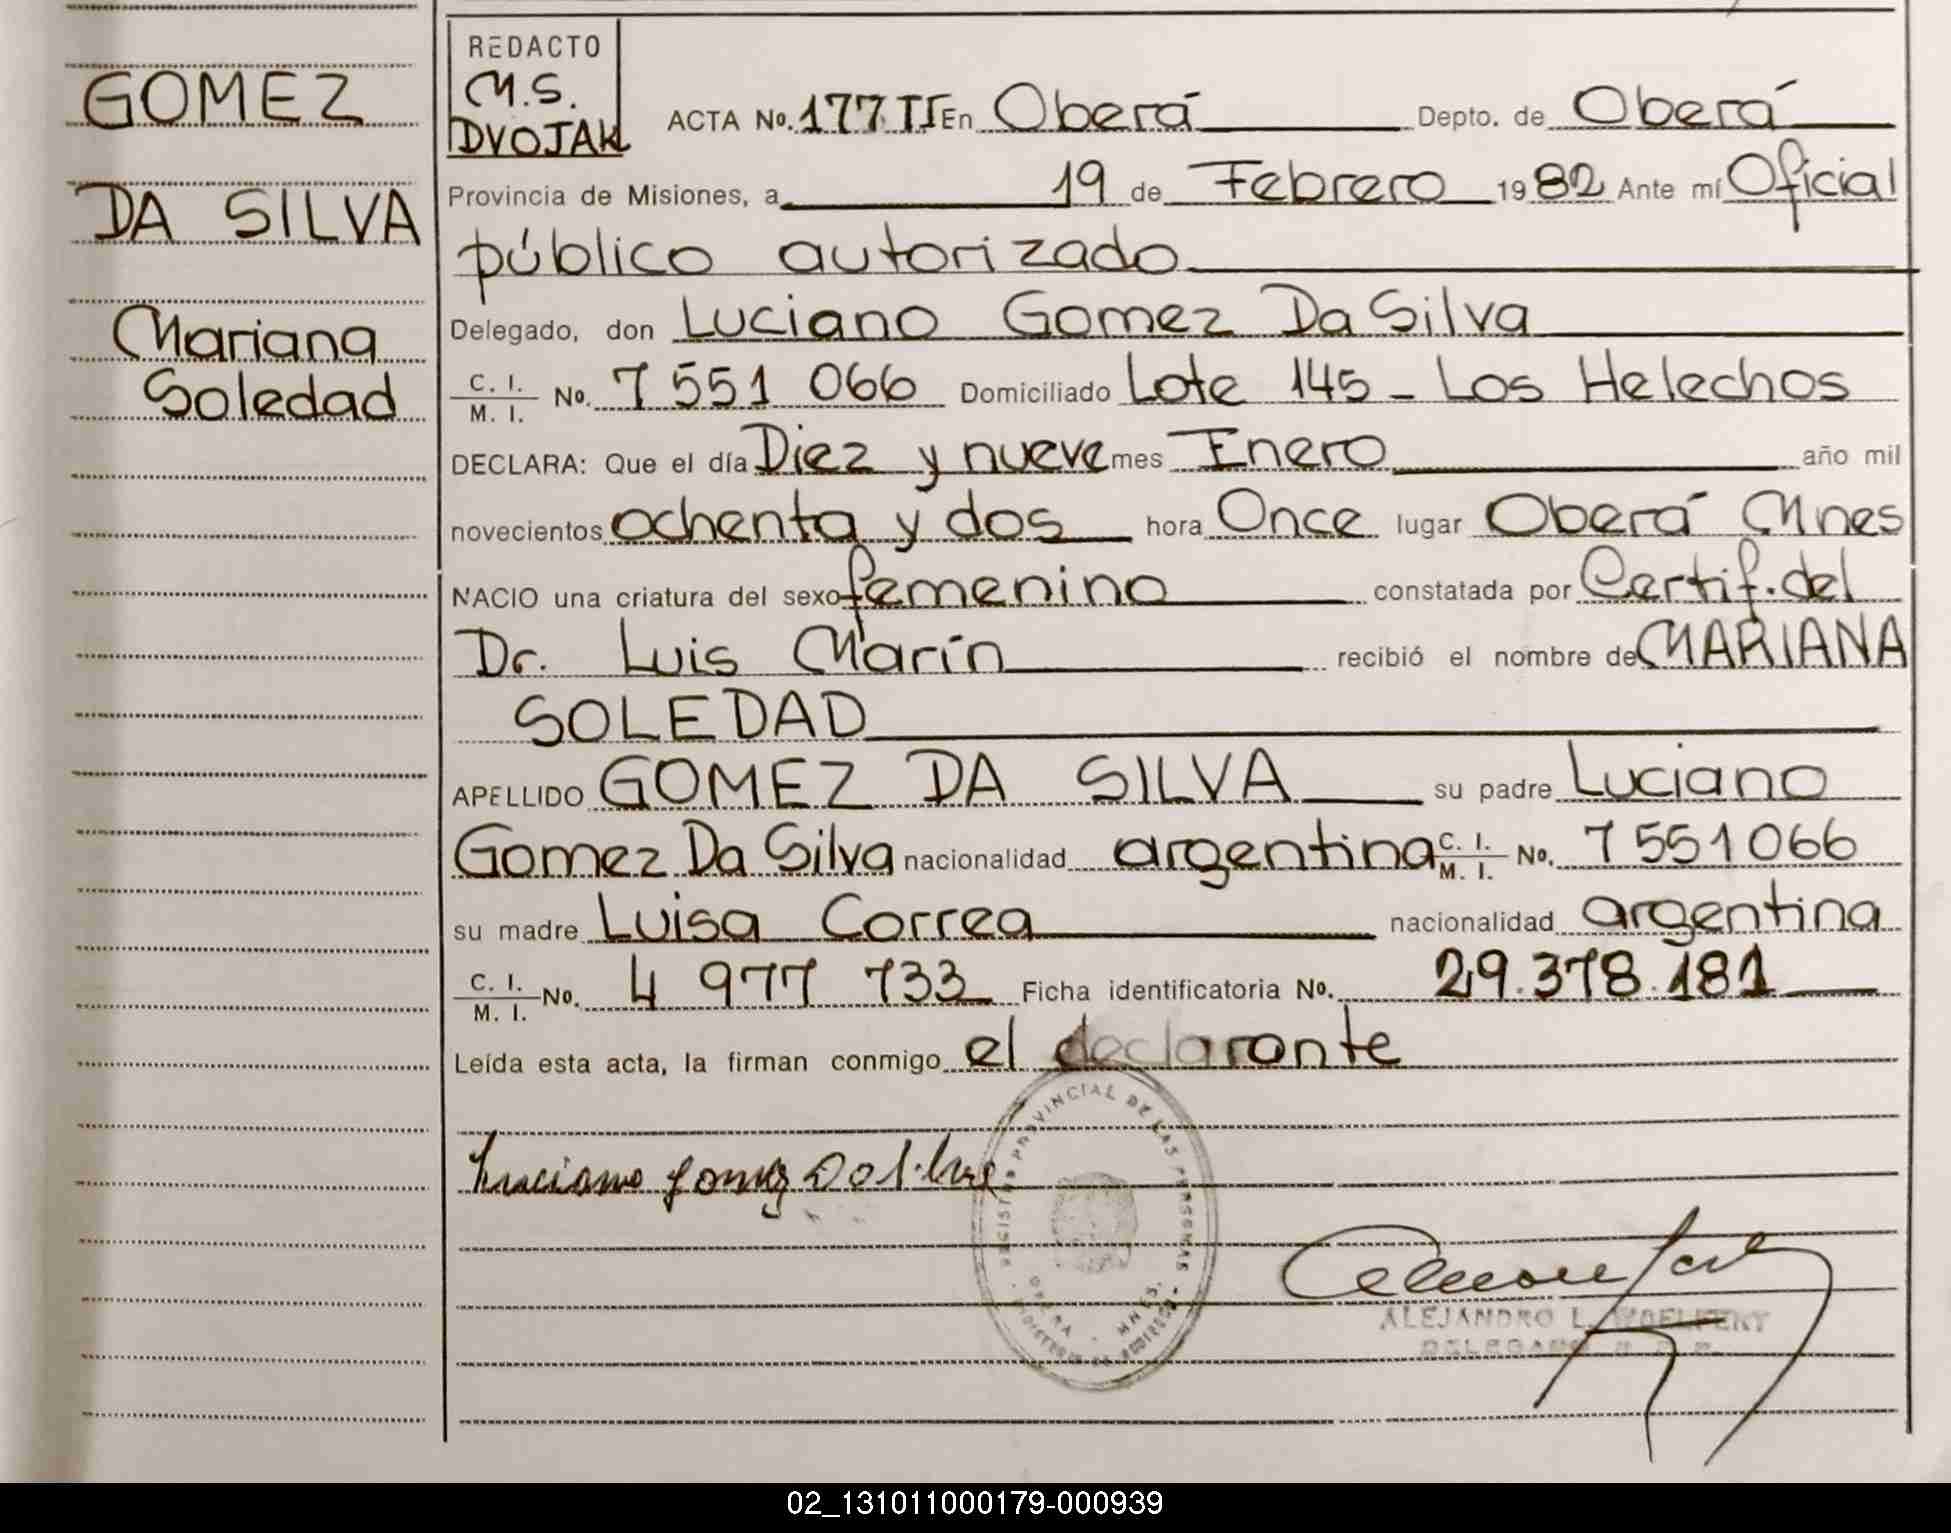 GOMEZ
DA SILVA
Mariana
Soledad
REDACTO
M.S.
DVOJAK
ACTA No. 177 TI En Oberá Depto. de Oberá
Provincia de Misiones, a 19 de Febrero 1982 Ante mí Oficial
público autorizado
Delegado, don Luciano Gomez Da Silva
C. I. / M. I. No. 7 551 066 Domiciliado Lote 145 - Los Helechos
DECLARA: Que el día Diez y nueve mes Enero año mil
novecientos ochenta y dos hora Once lugar Oberá Mnes
NACIO una criatura del sexo femenino constatada por Certif. del
Dr. Luis Marín recibió el nombre de MARIANA
SOLEDAD
APELLIDO GOMEZ DA SILVA su padre Luciano
Gomez Da Silva nacionalidad argentina C. I. / M. I. No. 7 551 066
su madre Luisa Correa nacionalidad argentina
C. I. / M. I. No. 4 977 733 Ficha identificatoria No. 29.378.181
Leída esta acta, la firman conmigo el declarante
Luciano Gomez Da Silva
REGISTRO PROVINCIAL DE LAS PERSONAS
OBERA - MNES.
ALEJANDRO L.
DELEGADO
02_131011000179-000939